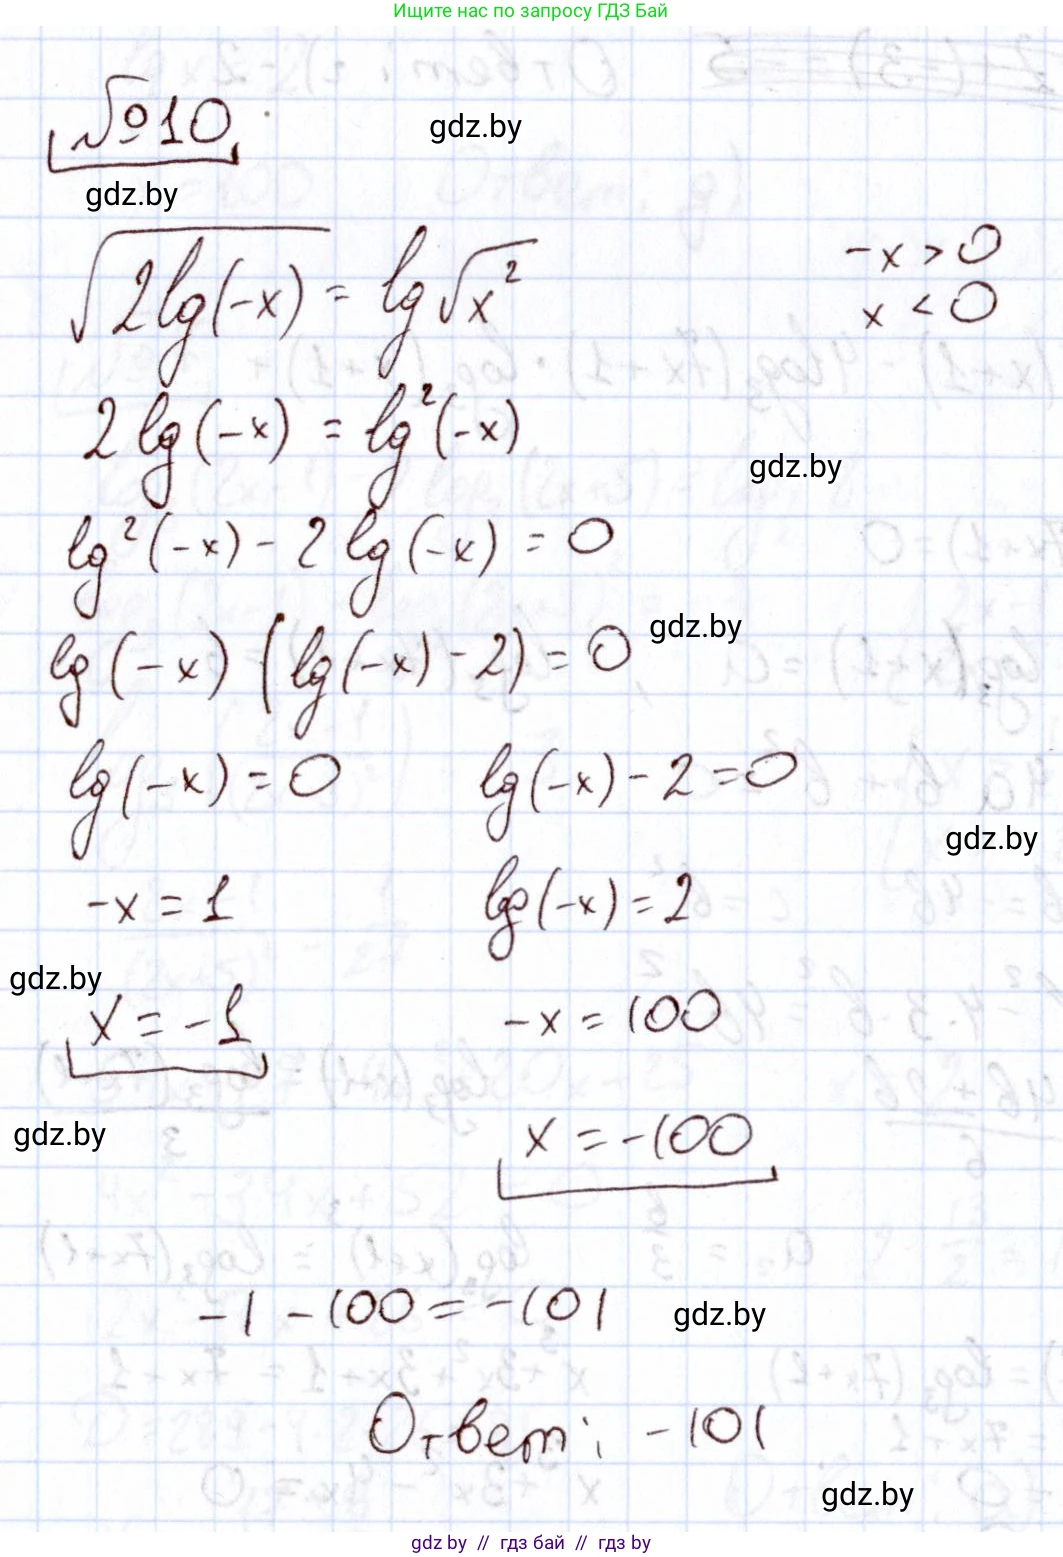 Ищите нас по запросу ГДЗ Бай
№10
gdz.by
gdz.by
√(2lg(-x)) = lg√x²
-x > 0
x < 0
2lg(-x) = lg²(-x)
gdz.by
lg²(-x) - 2lg(-x) = 0
gdz.by
lg(-x) (lg(-x) - 2) = 0
lg(-x) = 0 lg(-x) - 2 = 0
gdz.by
-x = 1 lg(-x) = 2
gdz.by
x = -1 -x = 100
gdz.by
x = -100
-1 - 100 = -101
gdz.by
Ответ: -101
gdz.by
gdz by // гдз бай // гдз by